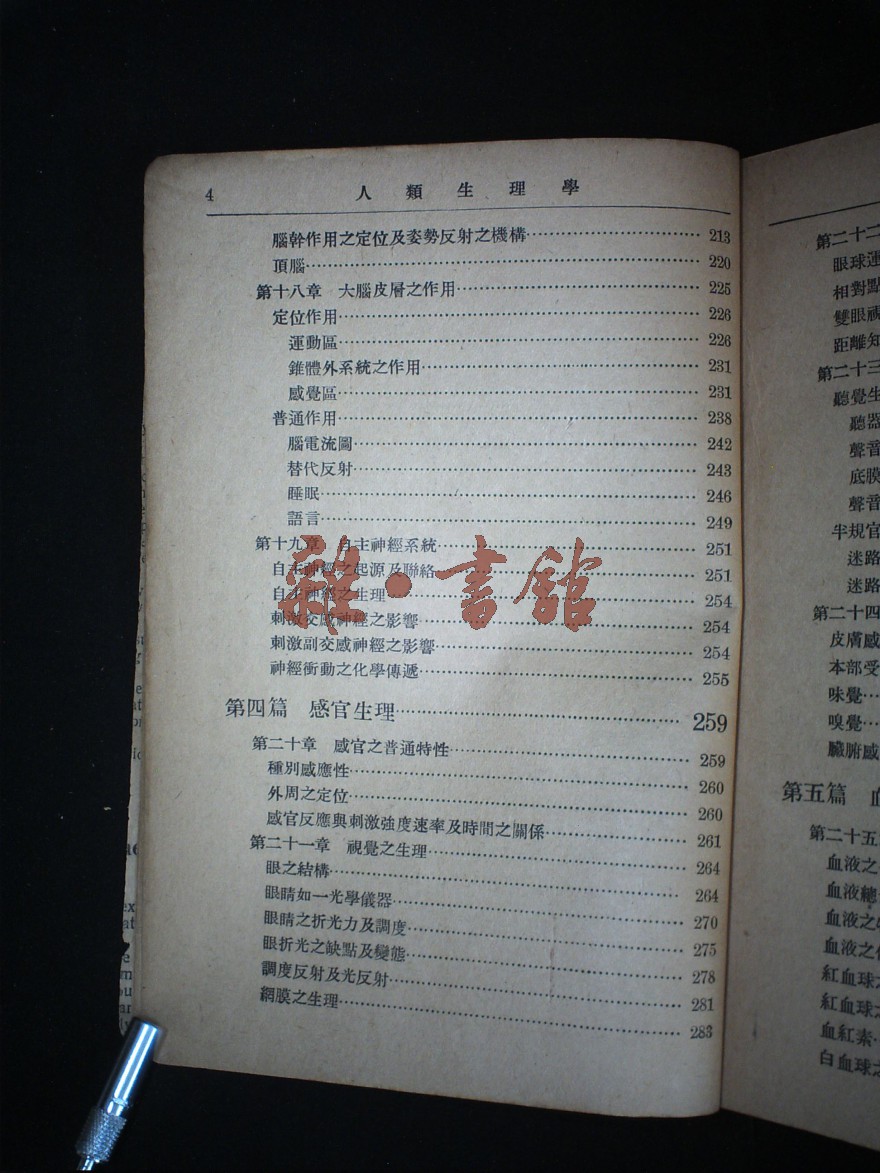 4 人類生理學
腦幹作用之定位及姿勢反射之機構……213
頂腦……220
第十八章 大腦皮層之作用……225
定位作用……226
運動區……226
錐體外系統之作用……231
感覺區……231
普通作用……238
腦電流圖……242
替代反射……243
睡眠……246
語言……249
第十九章 自主神經系統……251
自主神經之起源及聯絡……251
自主神經之生理……254
刺激交感神經之影響……254
刺激副交感神經之影響……254
神經衝動之化學傳遞……255
第四篇 感官生理……259
第二十章 感官之普通特性……259
種別感應性……260
外周之定位……260
感官反應與刺激強度速率及時間之關係……261
第二十一章 視覺之生理……264
眼之結構……264
眼睛如一光學儀器……270
眼睛之折光力及調度……275
眼折光之缺點及變態……278
調度反射及光反射……281
網膜之生理……283
雜·書館
第二十二
眼球運
相對點
雙眼視
距離知
第二十三
聽覺生
聽器
聲音
底膜
聲音
半規官
迷路
迷路
第二十四
皮膚感
本部受
味覺…
嗅覺…
臟腑感
第五篇 血
第二十五
血液之
血液總
血液之
血液之
紅血球之
紅血球之
血紅素…
白血球之